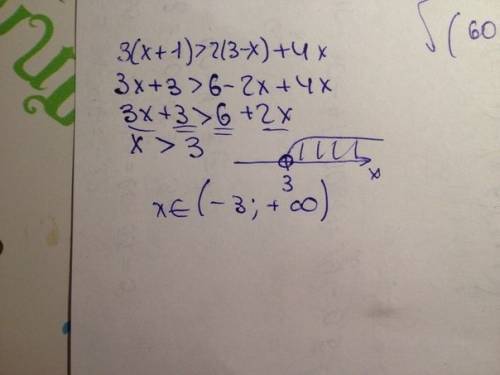 3(x+1)>2(3-x)+4x
3x+3>6-2x+4x
3x+3>6+2x
x>3
3
x
x∈(-3;+∞)
√(60